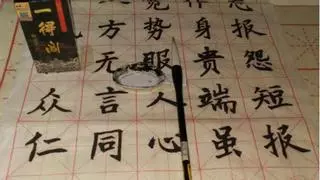 忘报怨短报
仆身贵端虽
宽势服人心
方无言同
众仁
一得阁